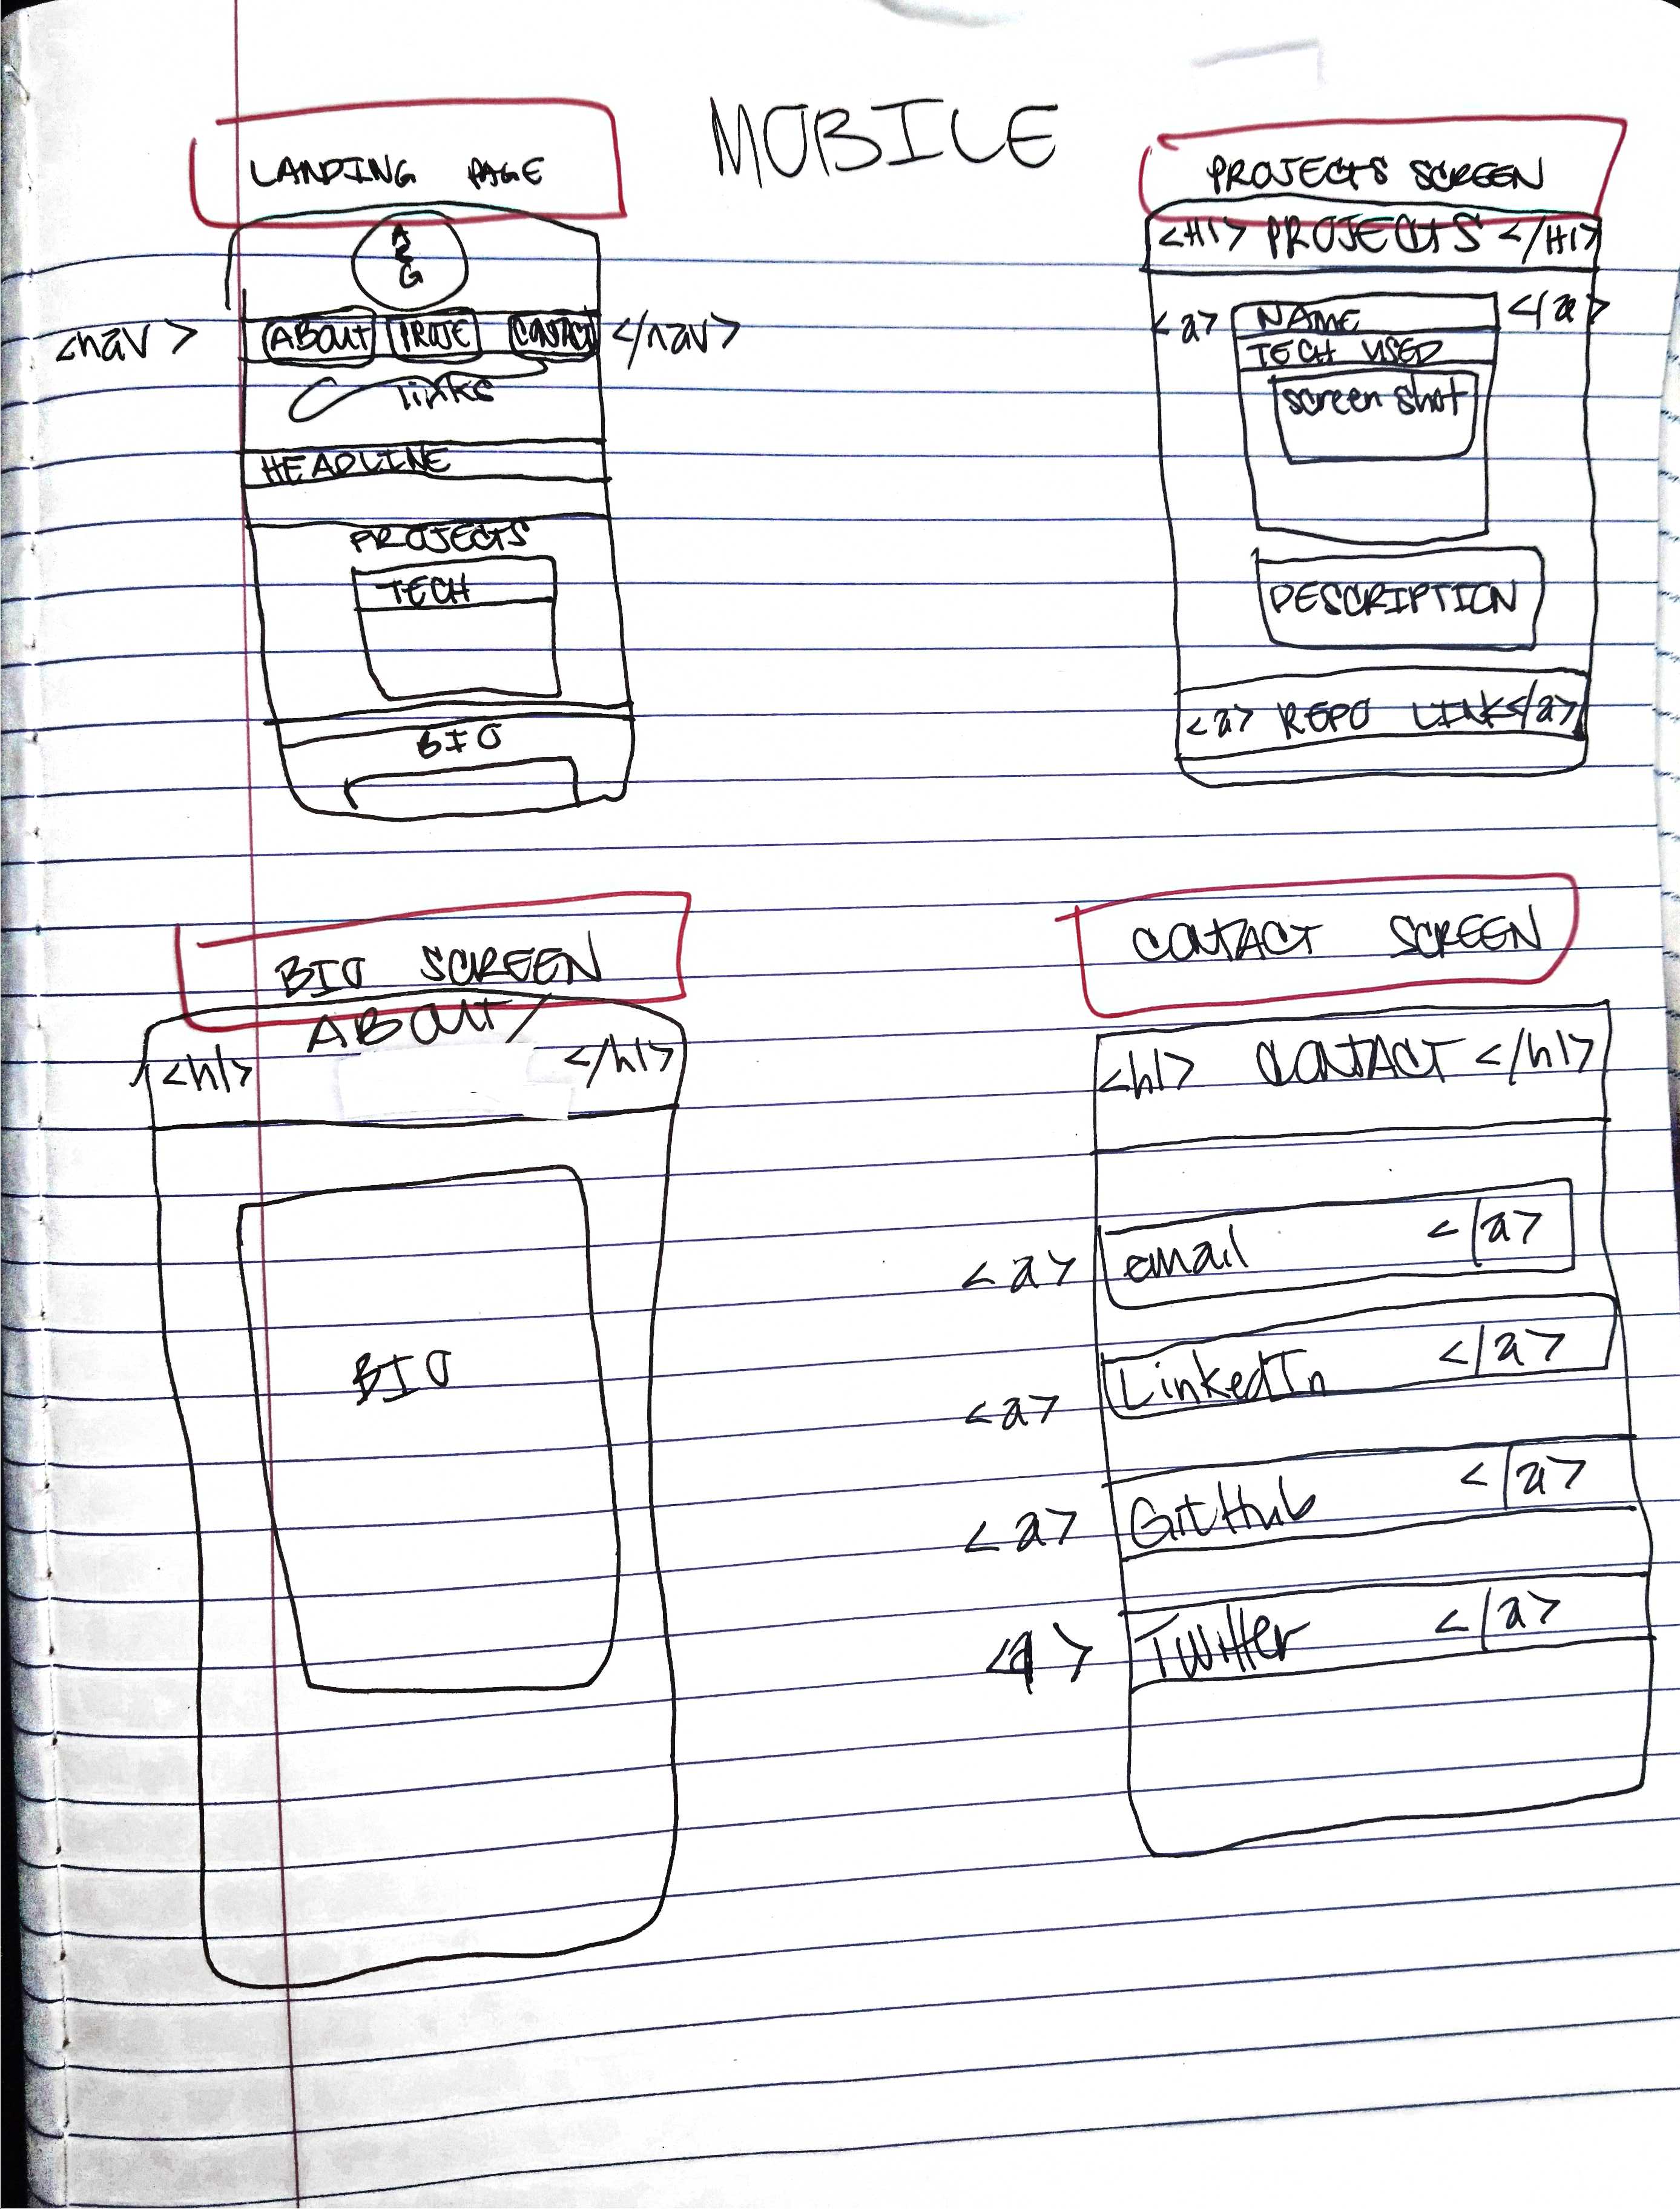 MOBILE
LANDING PAGE
A
E
G
<nav> ABOUT PROJE CONTACT </nav>
links
HEADLINE
PROJECTS
TECH
BIO
PROJECTS SCREEN
<H1> PROJECTS </H1>
<a> NAME </a>
TECH USED
screen shot
DESCRIPTION
<a> REPO LINK </a>
BIO SCREEN
ABOUT/
<h1> </h1>
BIO
CONTACT SCREEN
<h1> CONTACT </h1>
<a> email </a>
<a> LinkedIn </a>
<a> GitHub </a>
<a> Twitter </a>